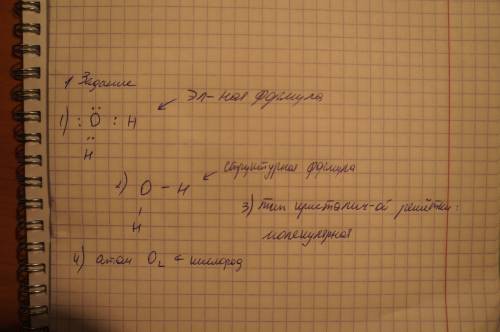 1 Задание
1) : Ö : H ← эл-ная формула
¨
H
2) O - H ← структурная формула
H
3) тип кристалич-ой решётки:
молекулярная
4) атом O₂ ← кислород